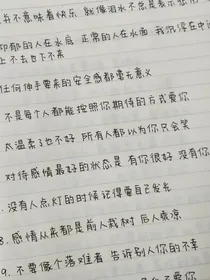 并不意味着快乐 就像泪水不总是表示悲伤
抑郁的人在水底 正常的人在水面 我沉浮在中间
上不去也下不来
任何伸手要来的安全感都毫无意义
不是每个人都能按照你期待的方式爱你
太温柔了也不好 所有人都以为你只会笑
对待感情最好的状态是 有你很好 没有你
没有人点灯的时候 记得要自己发光
8. 感情从来都是前人栽树 后人乘凉
9. 不要做个落难者 告诉别人你的不幸